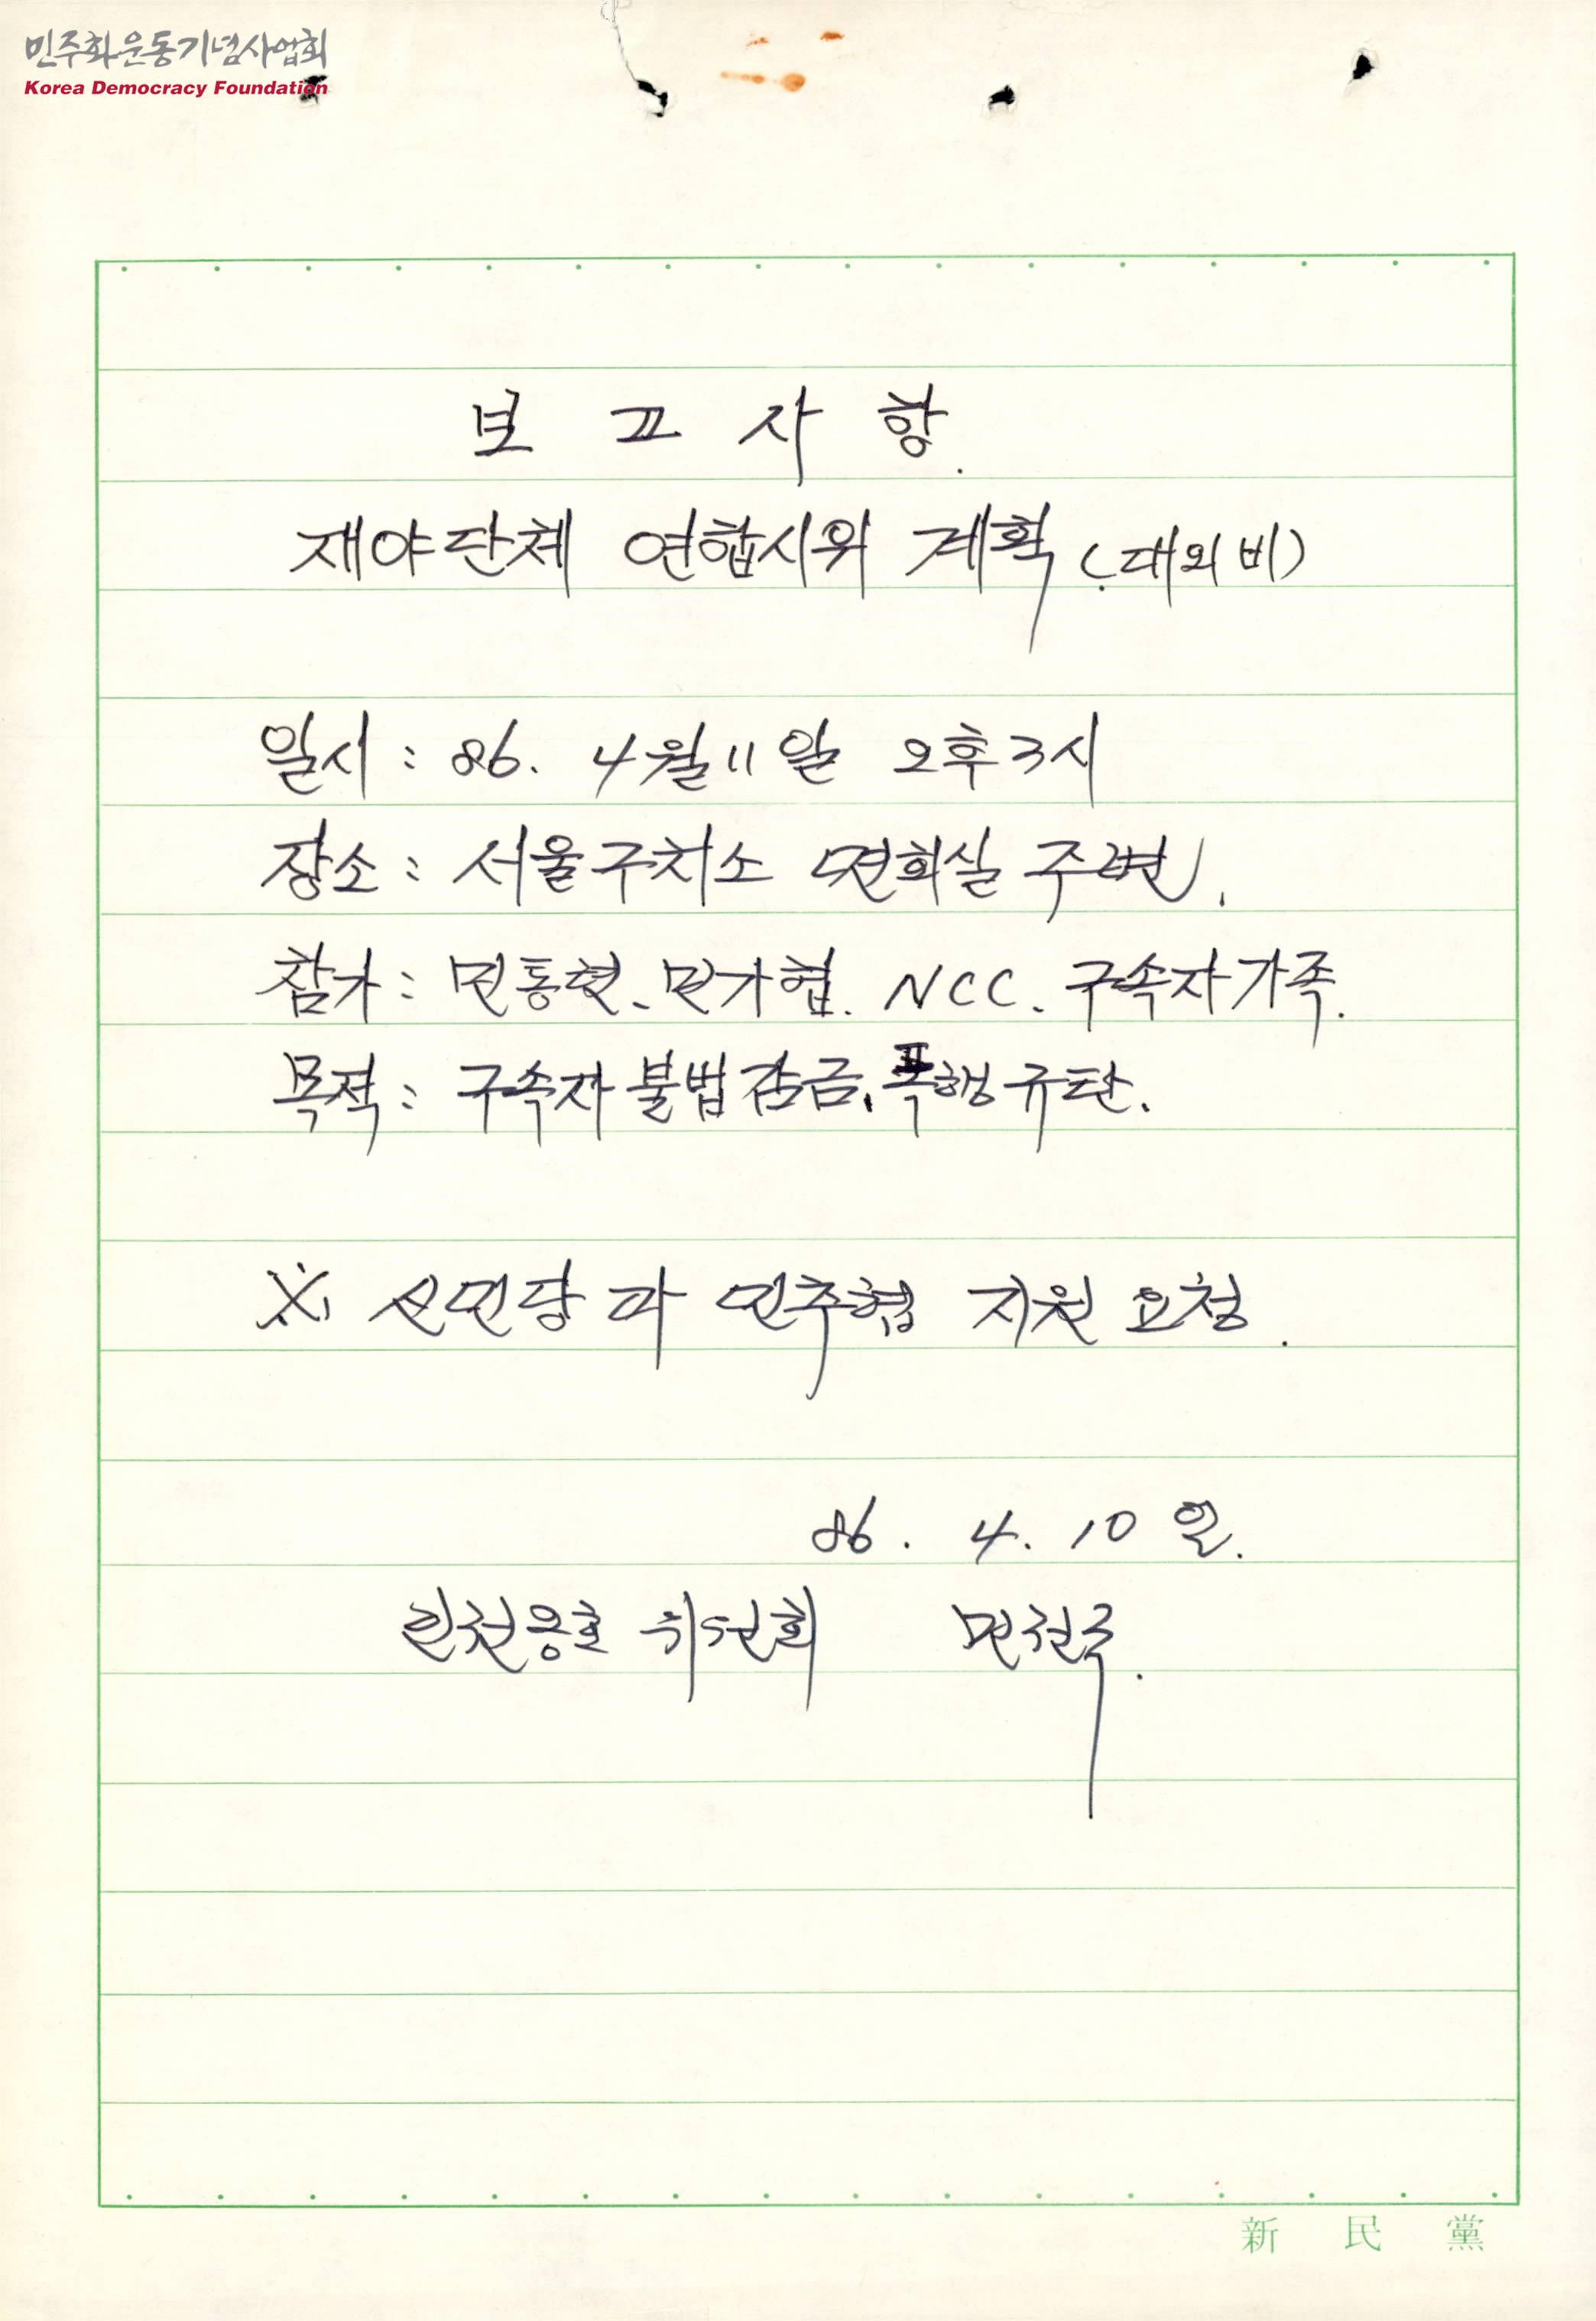 민주화운동기념사업회
Korea Democracy Foundation
보 고 사 항.
재야단체 연합시위 계획 (대외비)
일시 : 86. 4월 11일 오후 3시
장소 : 서울구치소 면회실 주변.
참가 : 민통련、민가협. NCC、구속자가족.
목적 : 구속자 불법감금, 폭행규탄.
※ 신민당과 민추협 지원 요청.
86. 4. 10일.
인권옹호 위원회
新 民 黨